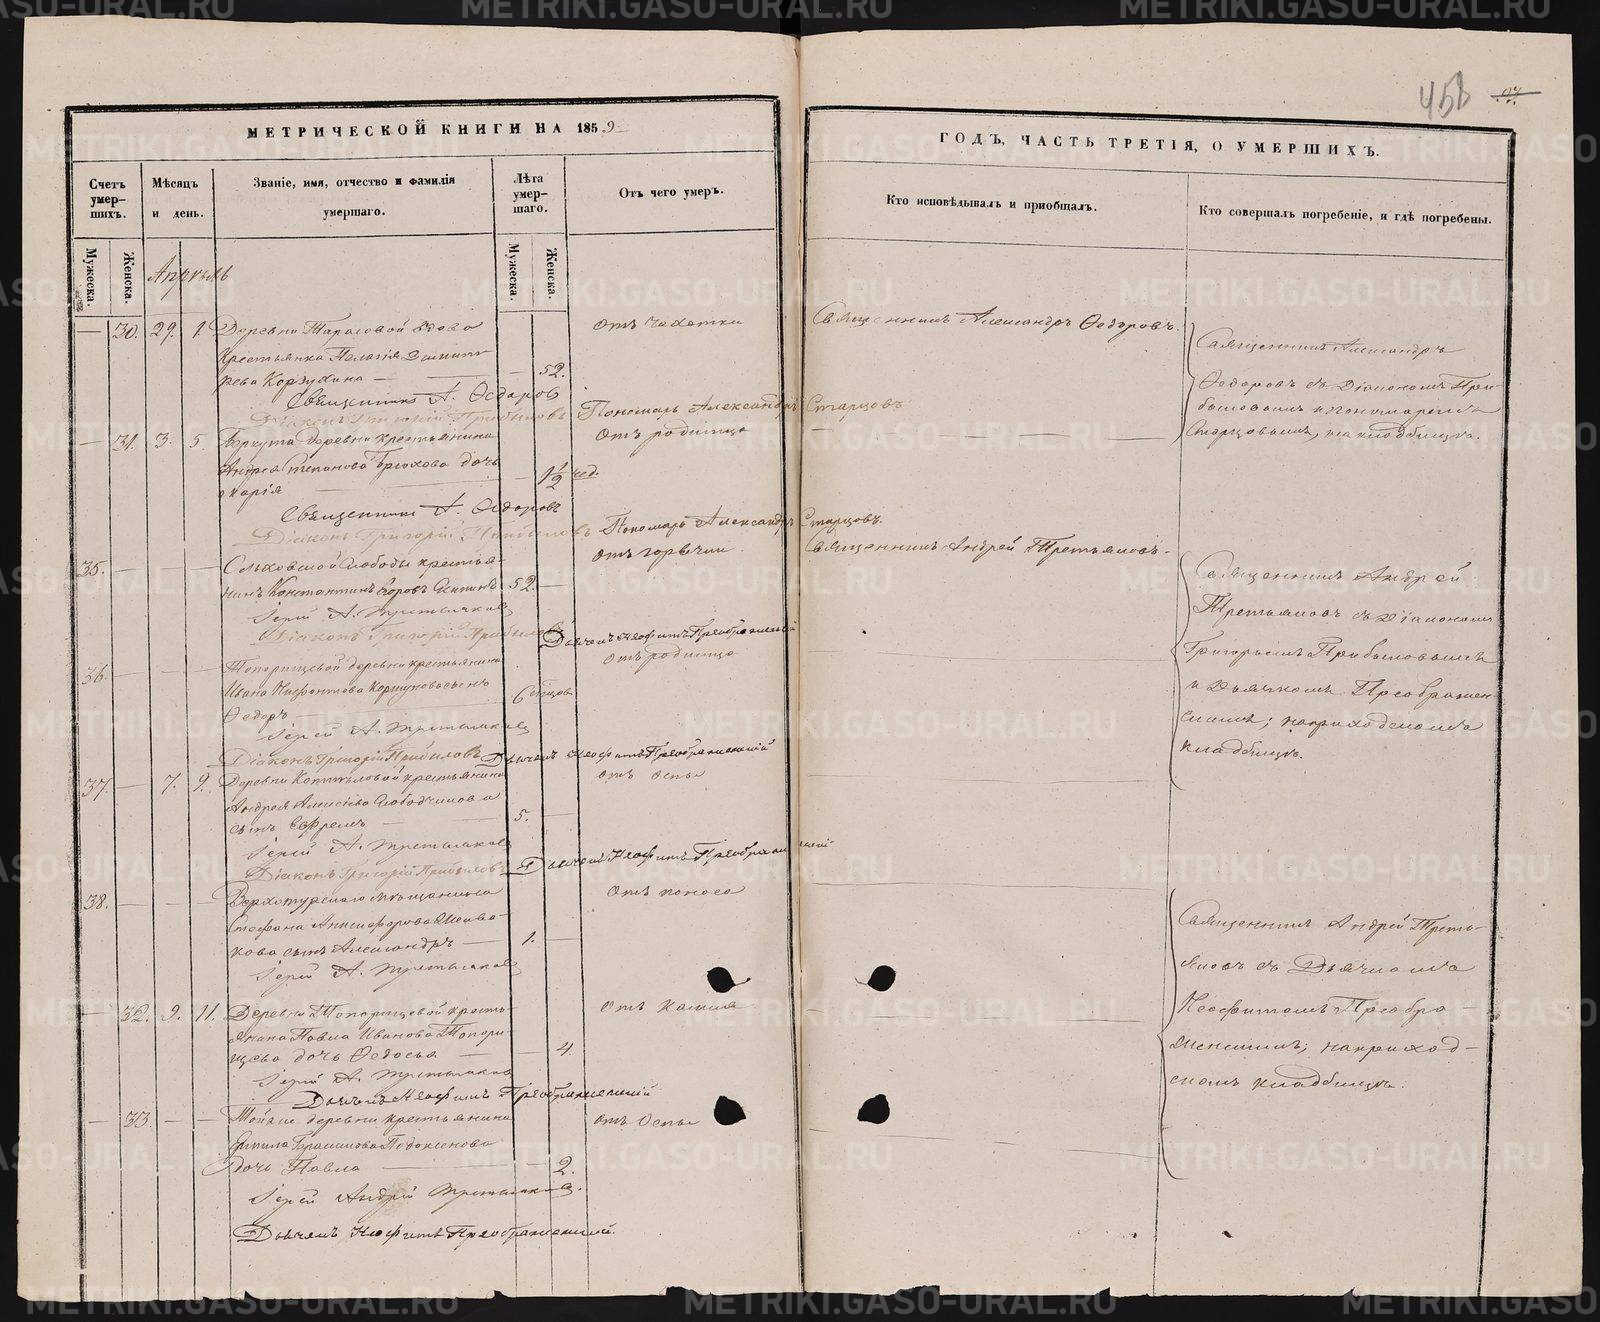 МЕТРИЧЕСКОЙ КНИГИ НА 1859
ГОДЪ, ЧАСТЬ ТРЕТІЯ, О УМЕРШИХЪ.
458
Счетъ умер-шихъ.
Мужеска.
Женска.
Мѣсяцъ и день.
Званіе, имя, отчество и фамилія умершаго.
Лѣта умер-шаго.
Мужеска.
Женска.
Отъ чего умеръ.
Кто исповѣдывалъ и пріобщалъ.
Кто совершалъ погребеніе, и гдѣ погребены.
Апрѣль
30. 29. 1. Деревни Тарасовой вдова
крестьянка Пелагія Димит
рева Коргухина 52.
Отъ чахотки
Священникъ Александръ Ѳедоровъ.
Священникъ А. Ѳедоровъ
Діаконъ Григорій Прибыловъ Пономарь Александръ Старцовъ
Священникъ Александръ
Ѳедоровъ съ Діакономъ При-
быловымъ и пономаремъ
Старцовымъ, на кладбищѣ.
31. 3. 5. деревни крестьянина
Андрея Степанова Брюхова дочь
Марія 1½ нед.
Отъ родимца
Священникъ А. Ѳедоровъ
Діаконъ Григорій Прибыловъ Пономарь Александръ Старцовъ.
35. слободы крестья-
нинъ Константинъ Егоровъ 52.
отъ горячки
Священникъ Андрей Третьяковъ.
Іерей А. Третьяковъ
Діаконъ Григорій Прибыловъ Дьячекъ Неофитъ Преображенскій
Священникъ Андрей
Третьяковъ съ Діакономъ
Григорьемъ Прибыловымъ
и Дьячкомъ Преображен
скимъ; на приходскомъ
кладбищѣ.
36. Топорищевой деревни крестьянина
Ивана Ксенофонтова сынъ
Ѳедоръ 6 мѣсцов
Отъ родимца
Іерей А. Третьяковъ
Діаконъ Григорій Прибыловъ Дьячекъ Неофитъ Преображенскій
37. 7. 9. Деревни Копыловой крестьянина
Андрея Алексѣева Слободчикова
сынъ Ефремъ 5.
отъ оспы
Іерей А. Третьяковъ
Діаконъ Григорій Прибыловъ Дьячекъ Неофитъ Преображенскій
38. Верхотурскаго мѣщанина
Стефана Никифорова
кова сынъ Александръ 1.
Отъ поноса
Іерей А. Третьяковъ
Священникъ Андрей Треть-
яковъ съ Дьячкомъ
Неофитомъ Преобра-
женскимъ; на приход-
скомъ кладбищѣ.
32. 9. 11. Деревни Топорищевой кресть
янина Павла Иванова Топори
щева дочь Ѳедосья 4.
Отъ кашля
Іерей А. Третьяковъ
Дьячекъ Неофитъ Преображенскій
33. деревни крестьянина
Герасимова
дочь Павла 2.
отъ Оспы
Іерей Андрей Третьяковъ.
Дьячекъ Неофитъ Преображенскій.
METRIKI.GASO-URAL.RU